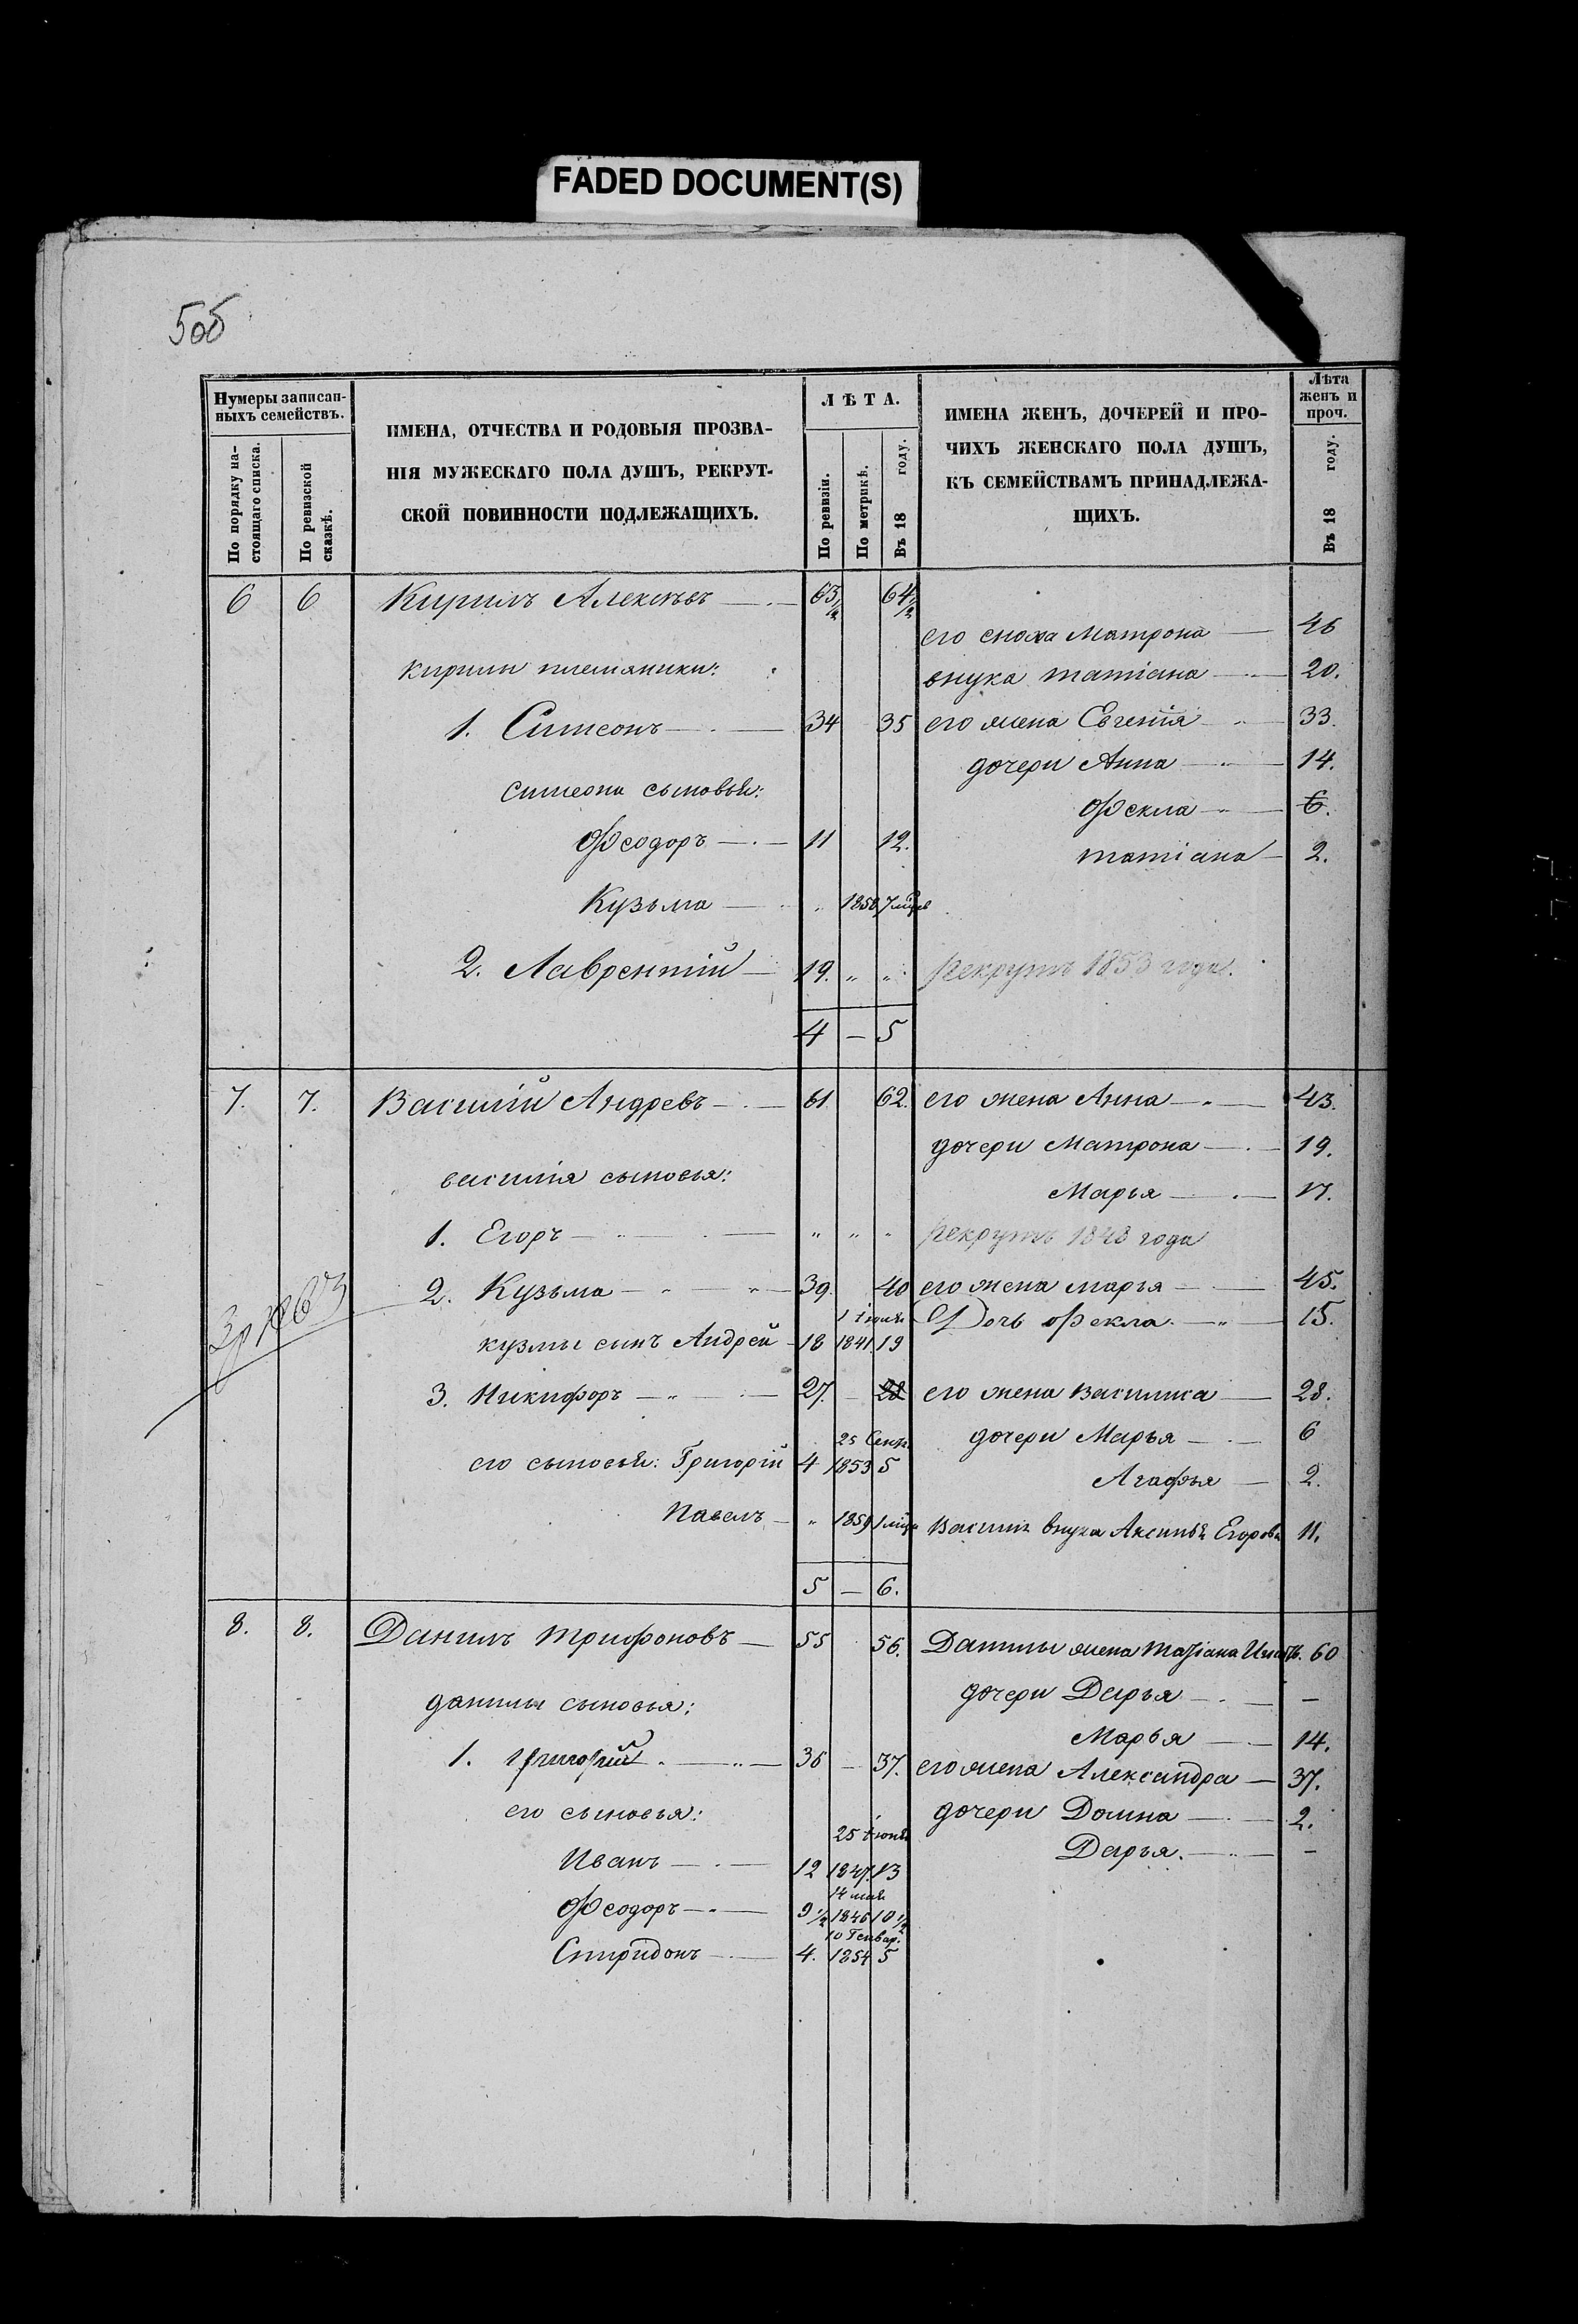 FADED DOCUMENT(S)
5об
Нумеры записан-
ныхъ семействъ.
По порядку на-
стоящаго списка.
По ревизской
сказкѣ.
ИМЕНА, ОТЧЕСТВА И РОДОВЫЯ ПРОЗВА-
НІЯ МУЖЕСКАГО ПОЛА ДУШЪ, РЕКРУТ-
СКОЙ ПОВИННОСТИ ПОДЛЕЖАЩИХЪ.
ЛѢТА.
По ревизіи.
По метрикѣ.
Въ 18 году.
ИМЕНА ЖЕНЪ, ДОЧЕРЕЙ И ПРО-
ЧИХЪ ЖЕНСКАГО ПОЛА ДУШЪ,
КЪ СЕМЕЙСТВАМЪ ПРИНАДЛЕЖА-
ЩИХЪ.
Лѣта
женъ и
проч.
Въ 18 году.
6 6 Кирилъ Алексѣевъ 63 1/2 64 1/2
его сноха Матрона 46
Кирилы племяники:
внука татіана 20.
1. Симеонъ 34 35 его жена Евгенія 33.
дочери Анна 14.
Симеона сыновья:
Фекла 6.
Феодоръ 11 12.
татіана 2.
Кузьма " 1858 7 мѣс
2. Лаврентій 19. " " рекрутъ 1853 года.
4 — 5
7. 7. Василій Андревъ 61 62. его жена Анна 43.
дочери Матрона 19.
василія сыновья:
Марья 17.
1. Егоръ " " " рекрутъ 1848 года
2. Кузьма 39. 40 его жена марья 45.
1 іюля Дочь фекла. 15.
кузмы сынъ Андрей 18 1841. 19
3. Никифоръ 27. — 28 его жена Василиса 28.
25 Сент. дочери Марья 6
его сыновья: Григорій 4 1853 5
Агафья 2.
Павелъ " 1859 1 мѣс Василія внука Аксинья Егорова 11.
5 — 6.
8. 8. Данилъ Трифоновъ 55 56. Данилы жена Татіана 60
дочери Дарья —
данилы сыновья:
Марья 14.
1. Григорій 36 — 37. его жена Александра 37.
его сыновья: дочери Домна 2.
25 іюня
Дарья. —
Иванъ 12 1847. 13
14 мая
Феодоръ 9 1/2 1846 10 1/2
10 Генвар.
Спиридонъ 4. 1854 5